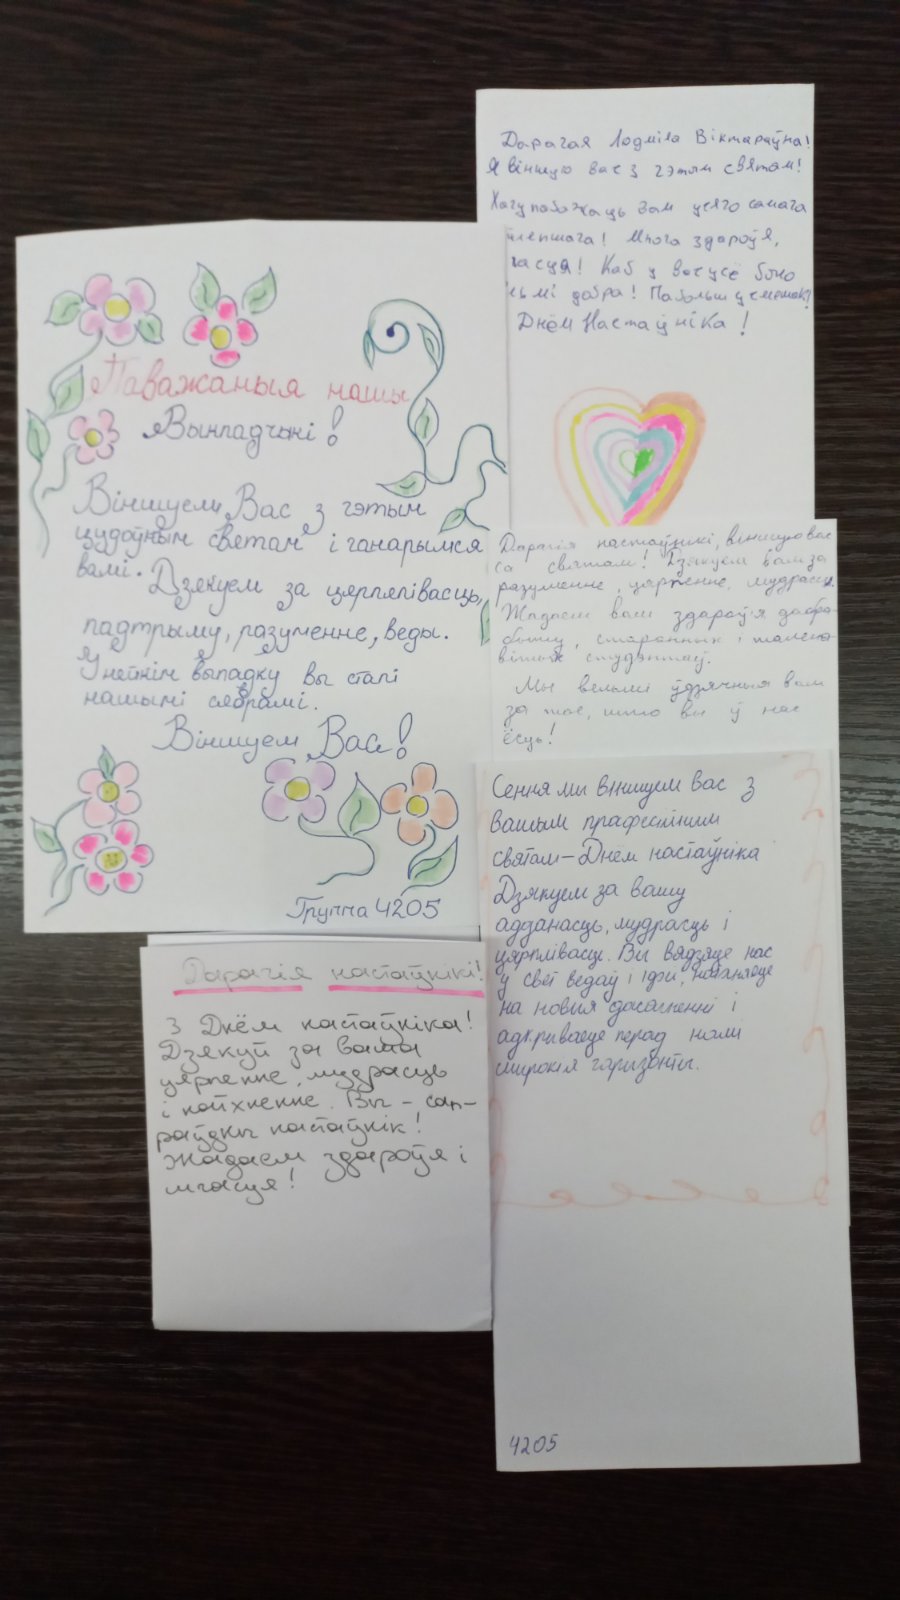 Паважаныя нашы
Выкладчыкі!
Віншуем Вас з гэтым
цудоўным светам і ганарымся
вамі. Дзякуем за цярплівасць,
падтрыму, разуменне, веды.
У нейкім выпадку вы сталі
нашымі сябрамі.
Віншуем Вас!
Группа 4205
Дарагая Людміла Віктараўна!
Я віншую вас з гэтым святам!
Хачу пабажаць Вам усяго самага
лепшага! Многа здароўя,
часця! Каб у вас усё было
добра! Пабольш усмешак!
Днём Настаўніка!
Дарагія настаўнікі, віншую вас
са святам! Дзякуем вам за
разуменне, цярпенне, мудрасць.
Жадаем вам здароўя дабра
бытну, старанных і талена
вітых студэнтаў.
Мы вельмі ўдзячныя вам
за тое, што вы ў нас
ёсць!
Сення мы віншуем вас з
вашым прафесійным
святам - Днём настаўніка
Дзякуем за вашу
адданасць, мудрасць і
цярплівасць. Вы вядзяце нас
у свеі ведаў і ідэй,
на новыя дасягненні і
адкрываеце перад намі
шырокія гарызонты.
4205
Дарагія настаўнікі!
З Днём настаўніка!
Дзякуй за вашы
цярпенне, мудрасць
і натхненне. Вы - сап-
раўдны настаўнік!
Жадаем здароўя і
шчасця!